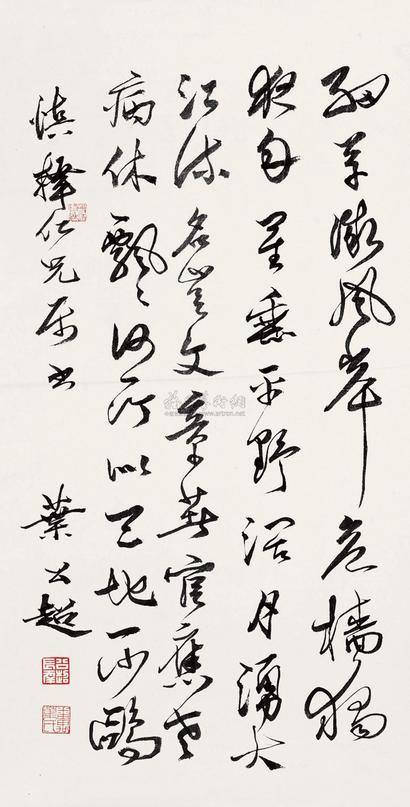 細草微風岸危檣獨
夜舟星垂平野闊月湧大
江流名豈文章著官應老
病休飄〻何所似天地一沙鷗
慎擇仁兄屬書 葉公超